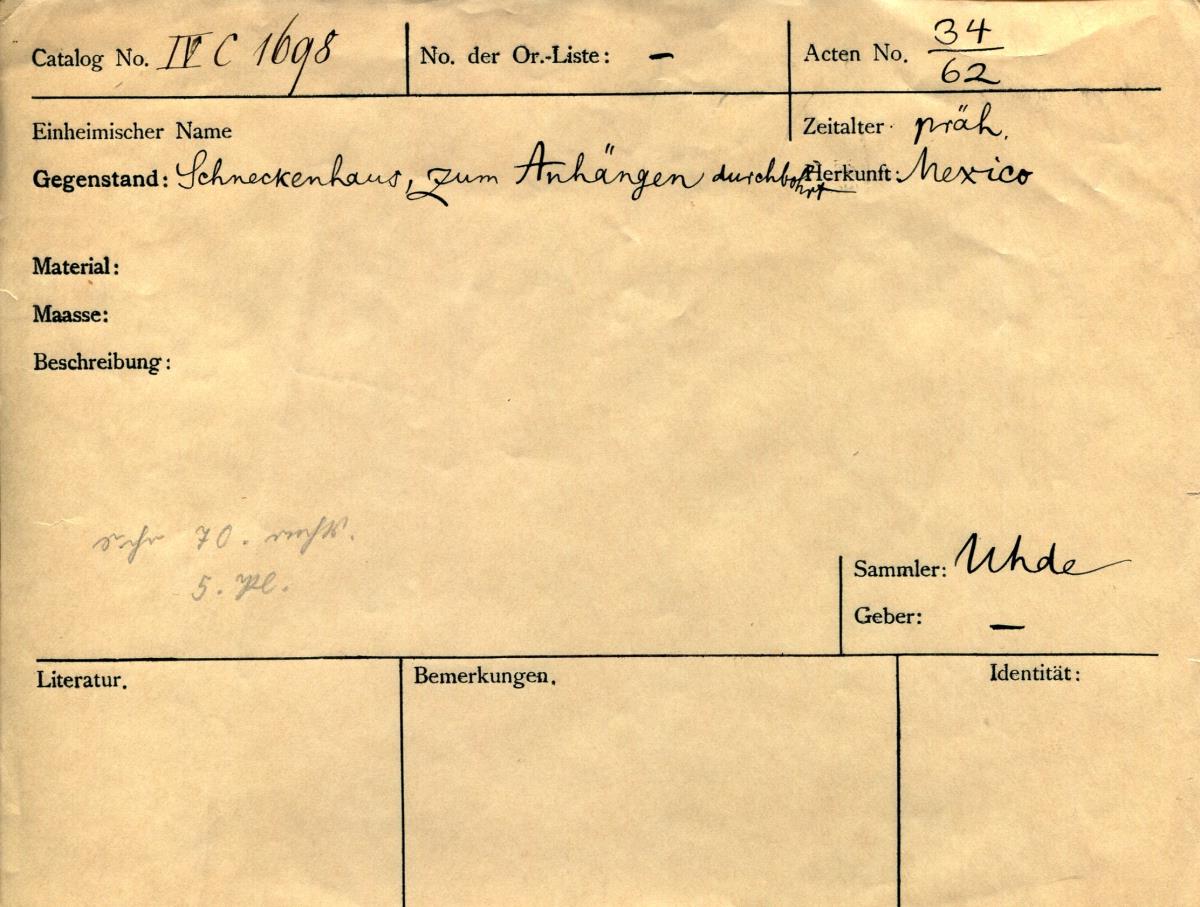 Catalog No. IV C 1698 No. der Or.-Liste: — Acten No. 34/62
Einheimischer Name Zeitalter präh.
Gegenstand: Schneckenhaus, zum Anhängen durchbohrt Herkunft: Mexico
Material:
Maasse:
Beschreibung:
70. rechts.
5. Pl.
Sammler: Uhde
Geber: —
Literatur. Bemerkungen. Identität: